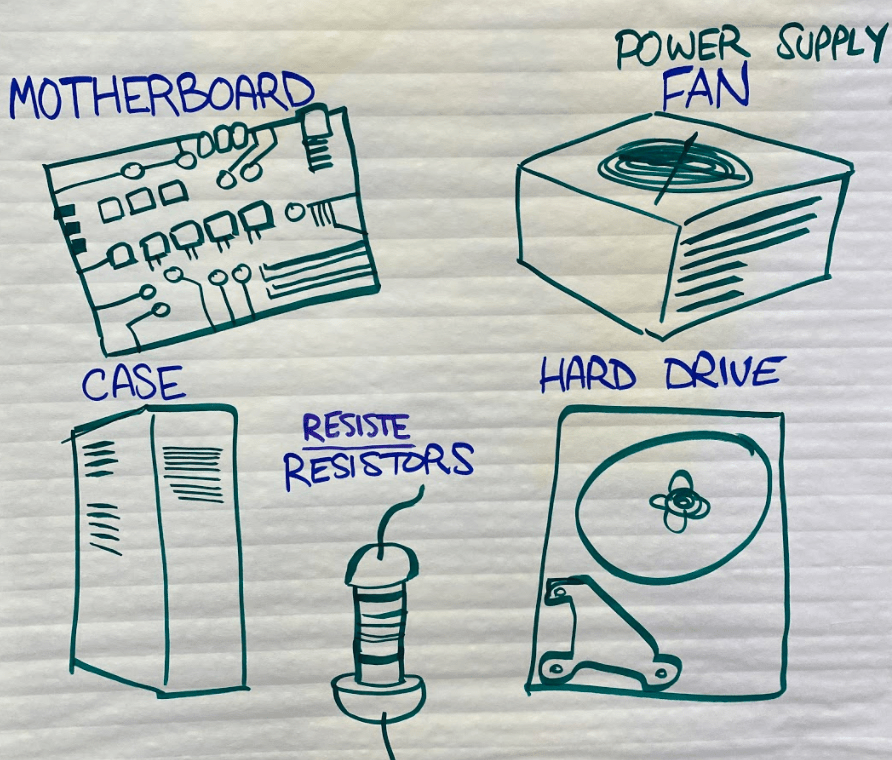 POWER SUPPLY
MOTHERBOARD
FAN
CASE
HARD DRIVE
RESISTE
RESISTORS